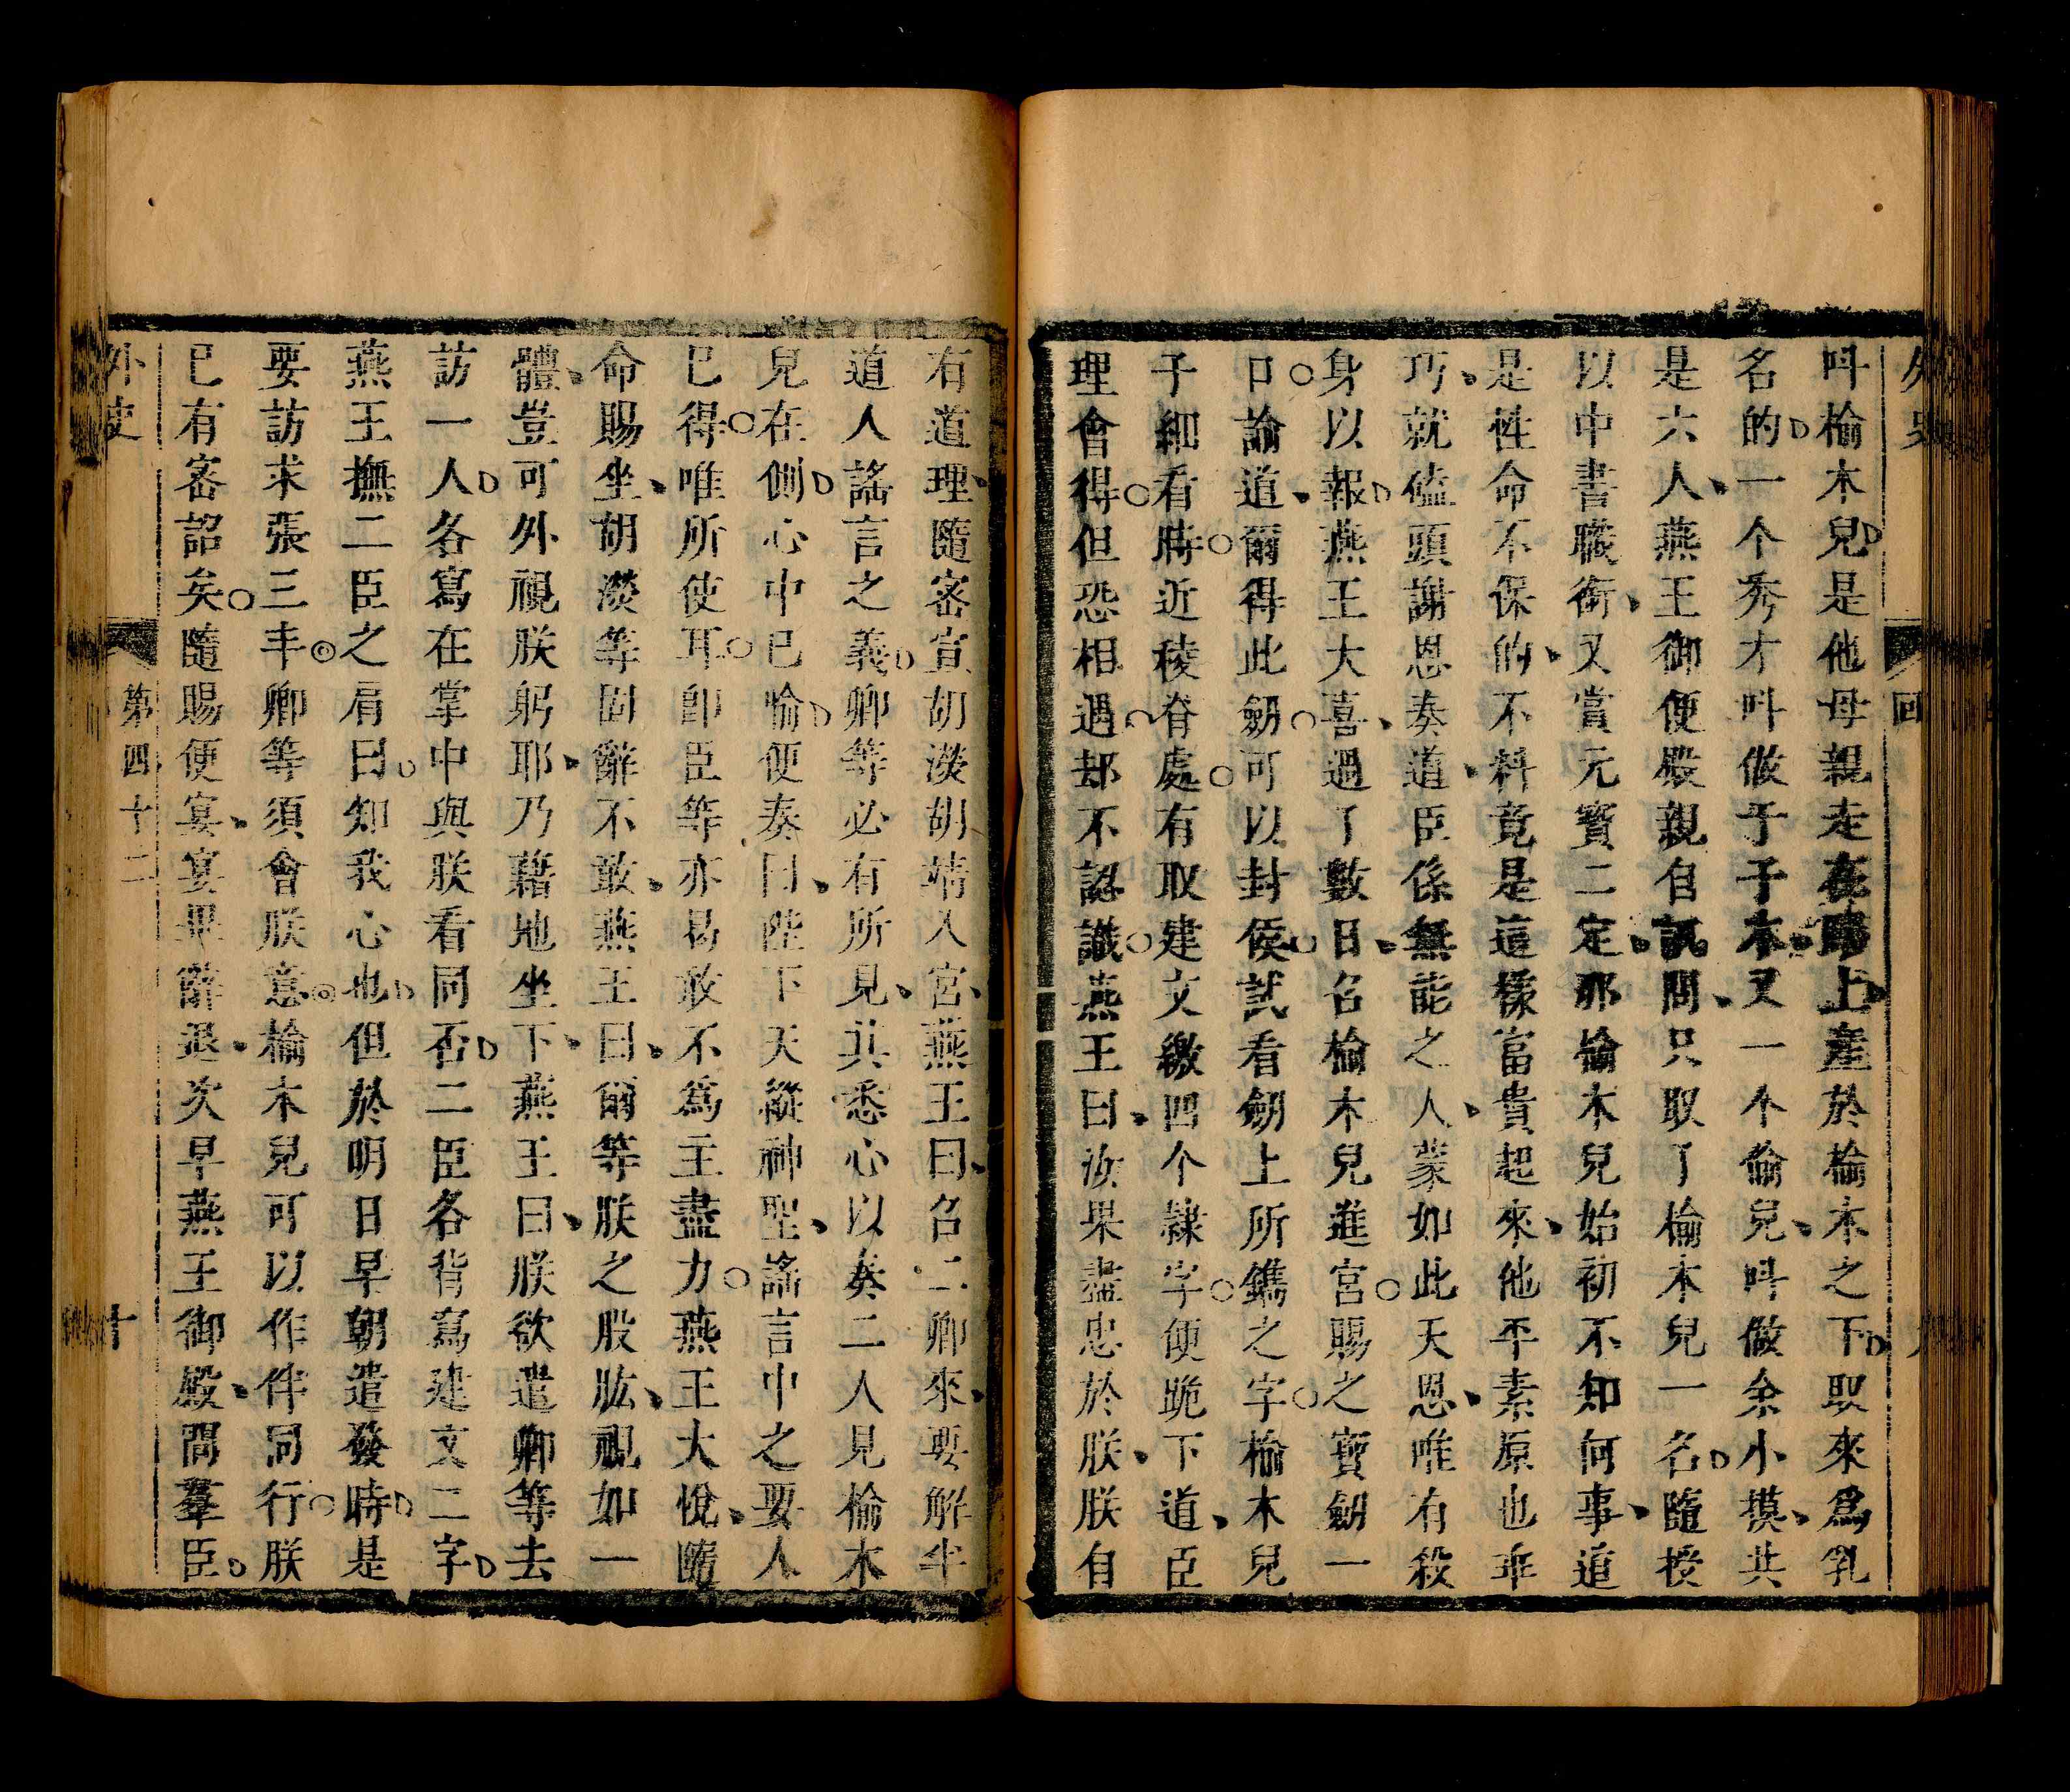 外史
回
叫榆木兒是他母親走在路上產於榆木之下取來爲乳
名的一个秀才叫做于子木又一个偷兒叫做余小摸共
是六人燕王御便殿親自試問只取了榆木兒一名隨授
以中書職銜又賞元寶二定那榆木兒始初不知何事道
是性命不保的不料竟是這樣富貴起來他平素原也乖
巧就磕頭謝恩奏道臣係無能之人蒙如此天恩唯有殺
身以報燕王大喜過了數日名榆木兒進宮賜之寶劒一
口諭道爾得此劒可以封侯試看劒上所鐫之字榆木兒
子細看時近稜脊處有取建文繳四个隸字便跪下道臣
理會得但恐相遇却不認識燕王曰汝果盡忠於朕朕自
有道理隨密宣胡濙胡靖入宮燕王曰召二卿來要解半
道人謠言之義卿等必有所見其悉心以奏二人見榆木
兒在側心中已愉便奏曰陛下天縱神聖謠言中之要人
已得唯所使耳卽臣等亦易敢不爲主盡力燕王大悅隨
命賜坐胡濙等固辭不敢燕王曰爾等朕之股肱視如一
體豈可外視朕躬耶乃藉地坐下燕王曰朕欲遣卿等去
訪一人各寫在掌中與朕看同否二臣各背寫建文二字
燕王撫二臣之肩曰知我心也但於明日早朝遣發時是
要訪求張三丰卿等須會朕意榆木兒可以作伴同行朕
已有密詔矣隨賜便宴宴畢辭退次早燕王御殿問羣臣
外史
第四十二
十